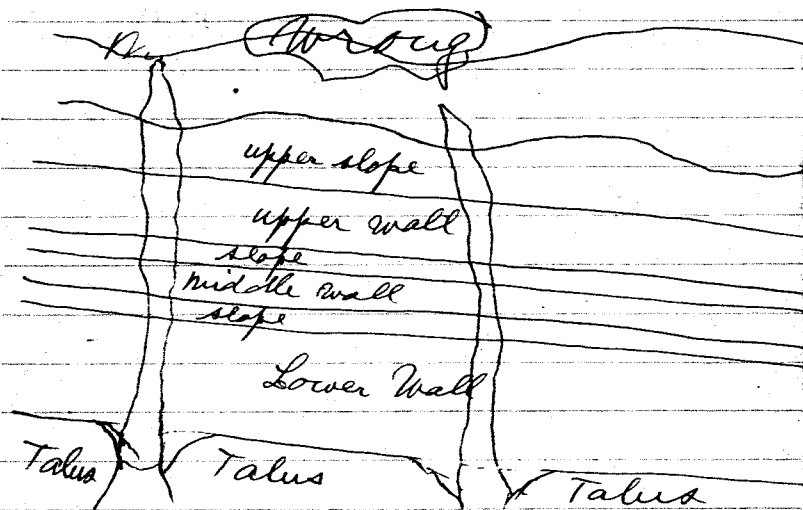 Wrong
upper slope
upper wall
slope
middle wall
slope
Lower Wall
Talus Talus Talus